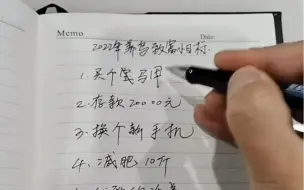 Memo
Date:
2022年养鸟致富目标
1.买个宝马甲
2.存款20000元
3.换个新手机
4.减肥10斤